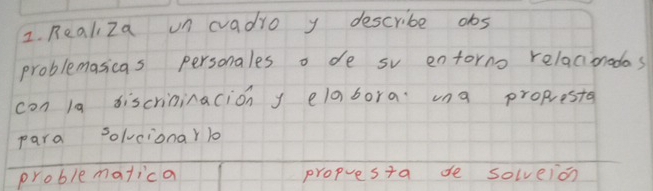 1. Realiza un cuadro y describe obs
problemasicas personales o de su entorno relacionadas
con la discriminación y elabora: una propuesta
para solucionarlo
problematica propuesta de solución